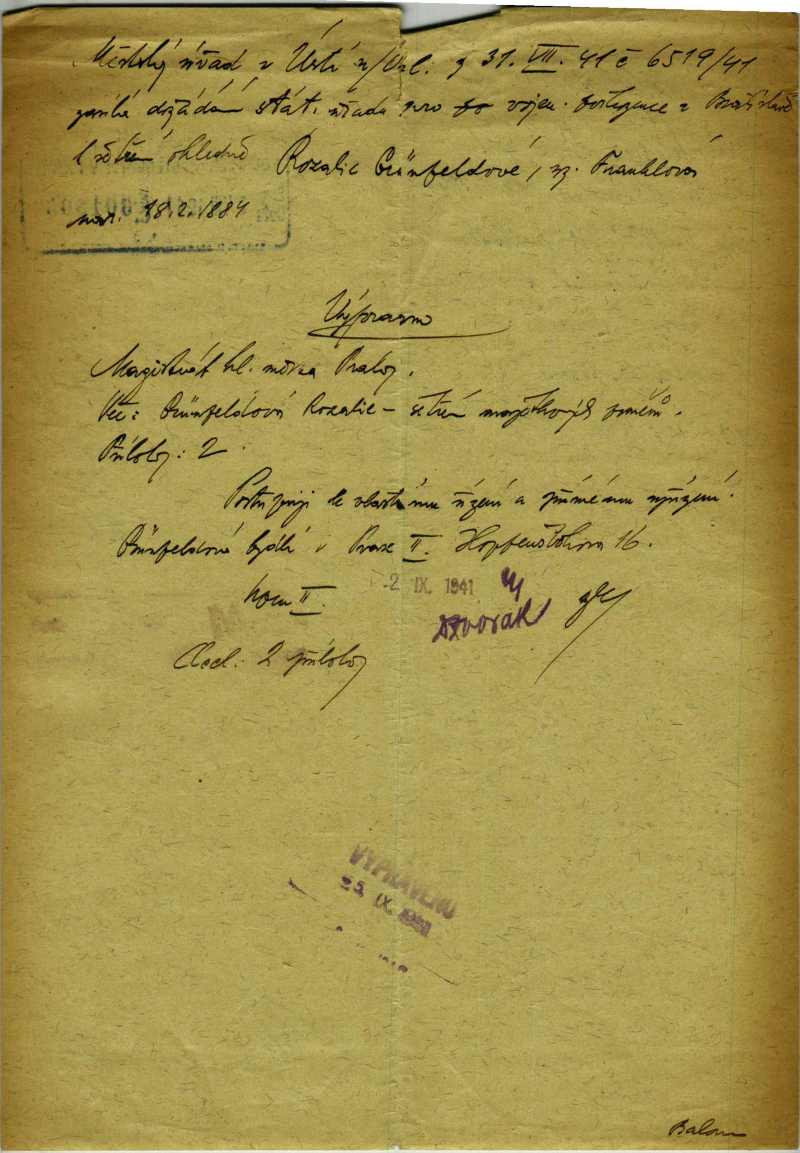 Městský úřad v Ústí n/Orl. z 31. VIII. 41 č 6519/41
zasílá dožádání stát. úřadu pro vojen. v Bratislavě
k šetření ohledně Rozalie Grünfeldové, roz. Franklová
nar. 18.2.1884
Výpravna
Magistrát hl. města Prahy.
Věc: Grünfeldová Rozalie – šetření majetkových poměrů.
Přílohy: 2
Postupuji k vlastnímu řízení a přímému vyřízení.
Grünfeldová bydlí v Praze II. Hopfenštokova 16.
II.
2 IX. 1941
Dvořák
2 přílohy
VYPRAVENO
25. IX. 1941